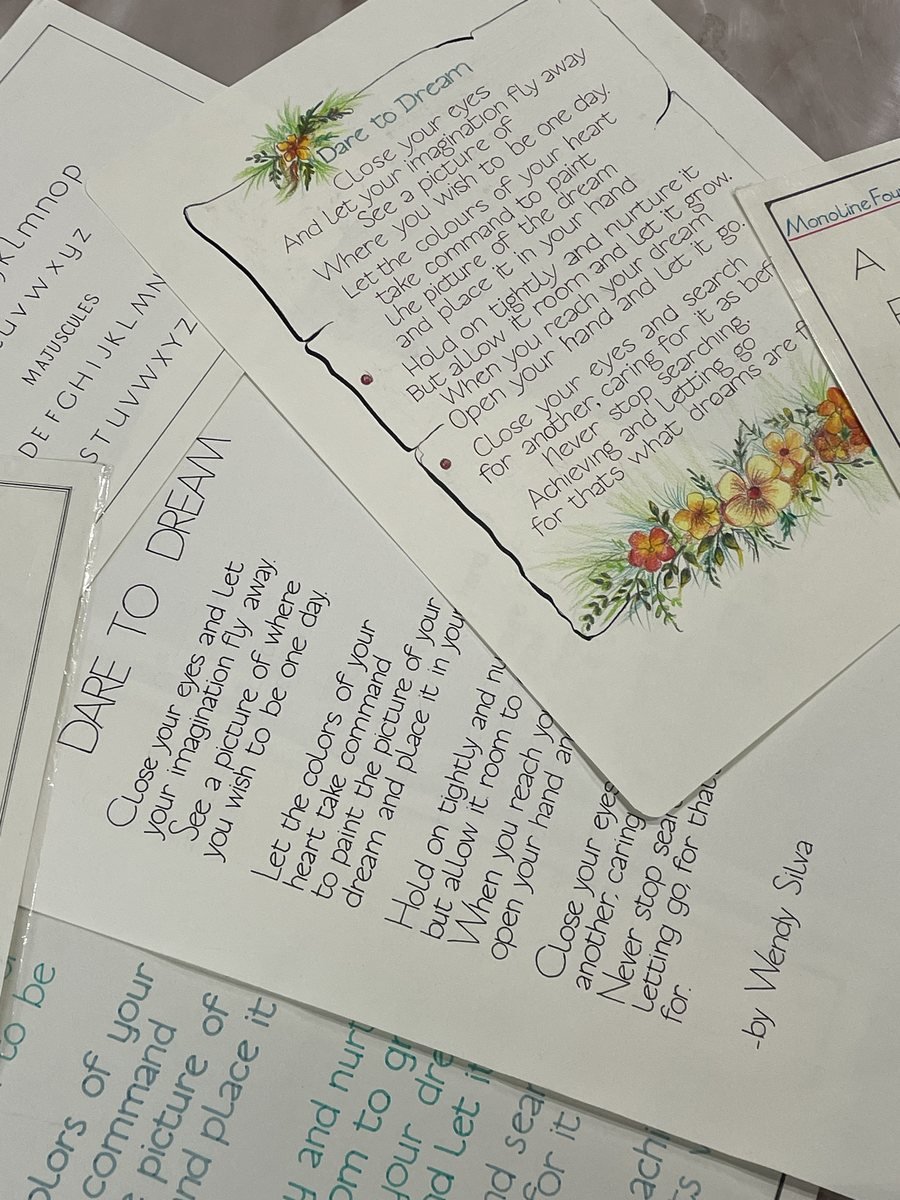 Dare to Dream
Close your eyes
And let your imagination fly away
See a picture of
Where you wish to be one day.
Let the colours of your heart
take command to paint
the picture of the dream
and place it in your hand
Hold on tightly and nurture it
But allow it room and let it grow.
When you reach your dream
Open your hand and let it go.
Close your eyes and search
for another, caring for it as bef
Never stop searching.
Achieving and letting go
for thats what dreams are f
MonoLine Fou
A
jklmnop
uvwxyz
MAJUSCULES
DEFGHIJKLMN
STUVWXYZ
DARE TO DREAM
Close your eyes and let
your imagination fly away.
See a picture of where
you wish to be one day.
Let the colors of your
heart take command
to paint the picture of your
dream and place it in your
Hold on tightly and nu
but allow it room to
When you reach yo
open your hand an
Close your eyes
another, caring
Never stop sea
letting go, for that
for.
-by Wendy Silva
to be
olors of your
command
picture of
nd place it
y and nurt
om to gr
your dre
nd let it
nd sear
for it
achi